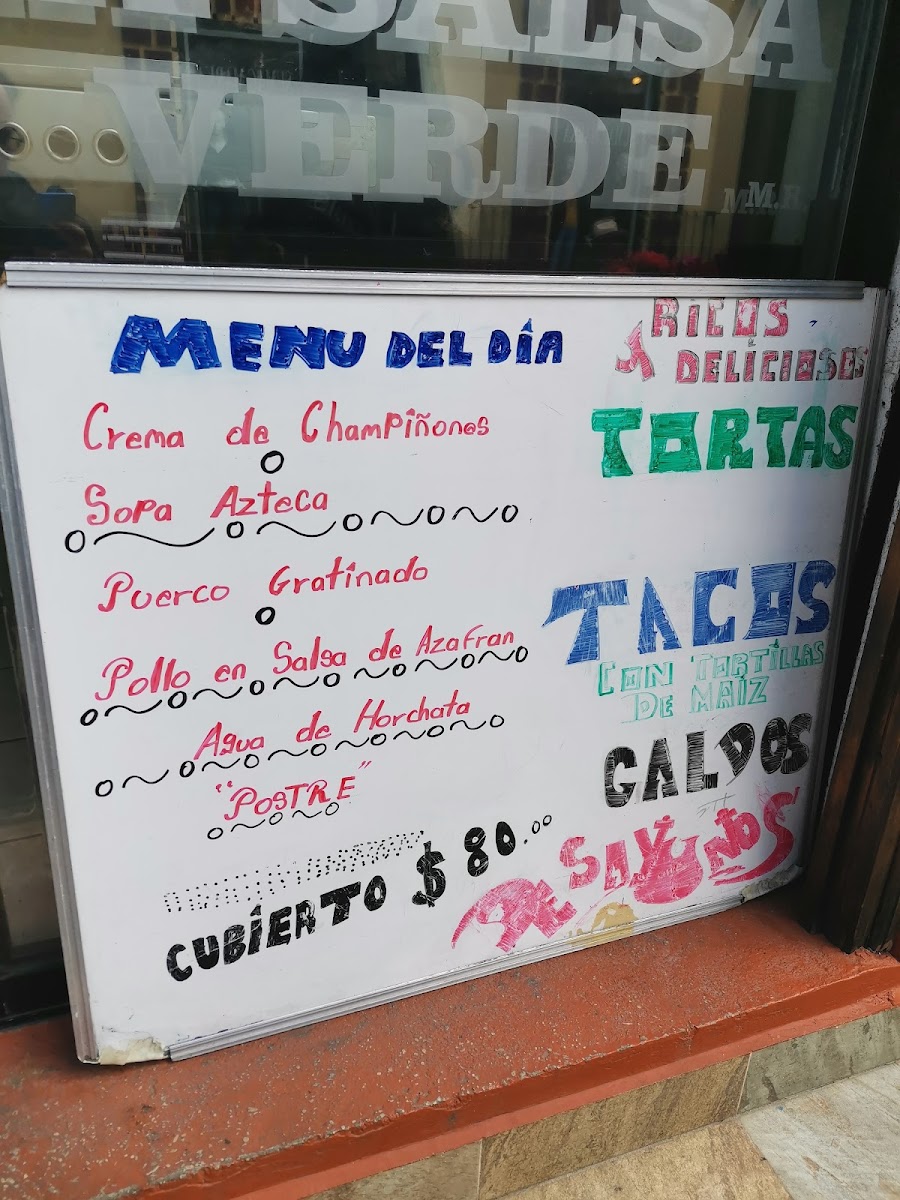 SALSA
VERDE
M.R.
MENU DEL DÍA
Crema de Champiñones
Sopa Azteca
Puerco Gratinado
Pollo en Salsa de Azafran
Agua de Horchata
"POSTRE"
CUBIERTO $80.00
RICOS
Y DELICIOSOS
TORTAS
TACOS
CON TORTILLAS
DE MAÍZ
CALDOS
DESAYUNOS